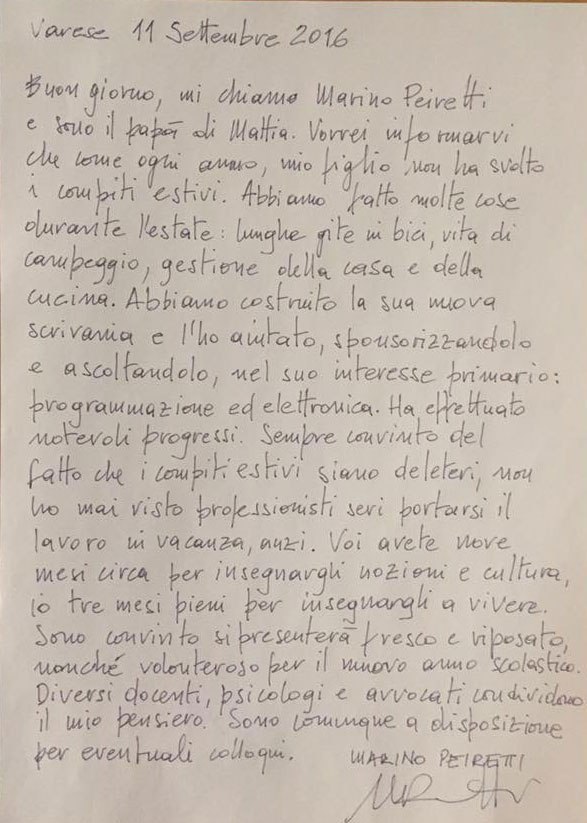 Varese 11 Settembre 2016
Buon giorno, mi chiamo Marino Peiretti
e sono il papà di Mattia. Vorrei informarvi
che come ogni anno, mio figlio non ha svolto
i compiti estivi. Abbiamo fatto molte cose
durante l'estate: lunghe gite in bici, vita di
campeggio, gestione della casa e della
cucina. Abbiamo costruito la sua nuova
scrivania e l'ho aiutato, sponsorizzandolo
e ascoltandolo, nel suo interesse primario:
programmazione ed elettronica. Ha effettuato
notevoli progressi. Sempre convinto del
fatto che i compiti estivi siano deleteri, non
ho mai visto professionisti seri portarsi il
lavoro in vacanza, anzi. Voi avete nove
mesi circa per insegnargli nozioni e cultura,
io tre mesi pieni per insegnargli a vivere.
Sono convinto si presenterà fresco e riposato,
nonché volonteroso per il nuovo anno scolastico.
Diversi docenti, psicologi e avvocati condividono
il mio pensiero. Sono comunque a disposizione
per eventuali colloqui. MARINO PEIRETTI